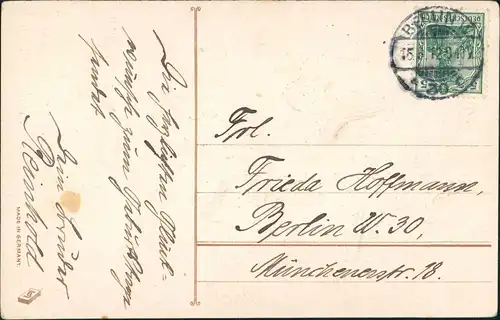 Die herzlichsten Glück-
wünsche zum Geburtstage
sendet
Dein Bruder
Reinhold
Frl.
Frieda Hoffmann,
Berlin W. 30,
Münchenerstr. 18.
BERLIN
30
MADE IN GERMANY.